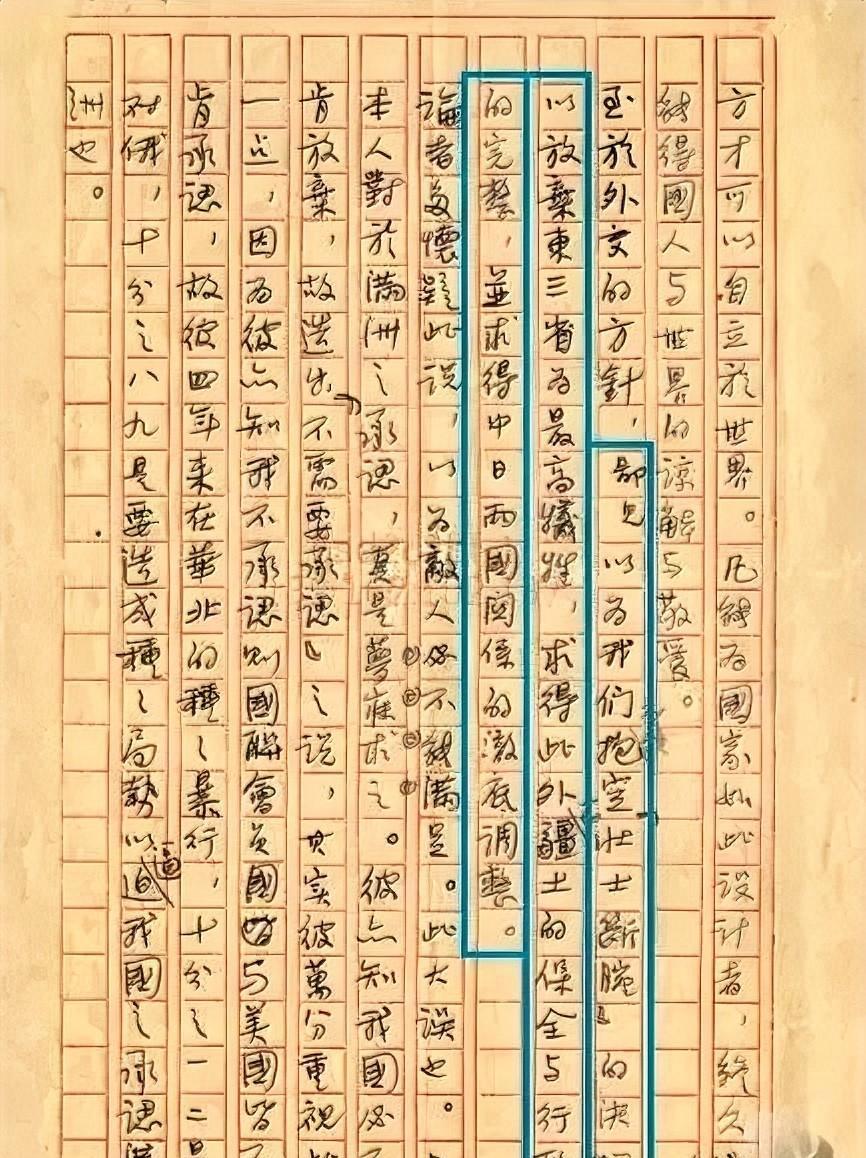 方才可以自立於世界。凡能為國家如此設計者，終久
能得國人与世界的諒解与敬愛。
至於外交的方針，鄙見以為我们抱定壮士斷腕」的決
以放棄東三省為最高犧牲，求得此外疆土的保全与行
的完整，並求得中日兩國関係的澈底调整。
論者多懷疑此说，以為敵人必不能滿足。此大误也。
本人對於滿洲之承認，真是夢寐求之。彼亦知我國必
肯放棄，故造出「不需要承認」之説，其实彼萬分重視
一点，因為彼亦知我不承認則國聯會員國皆与美國皆
肯承認，故彼四年来在華北的種〻暴行，十分之一二是
对俄，十分之八九是要造成種〻局勢以逼我國之承認滿
洲也。